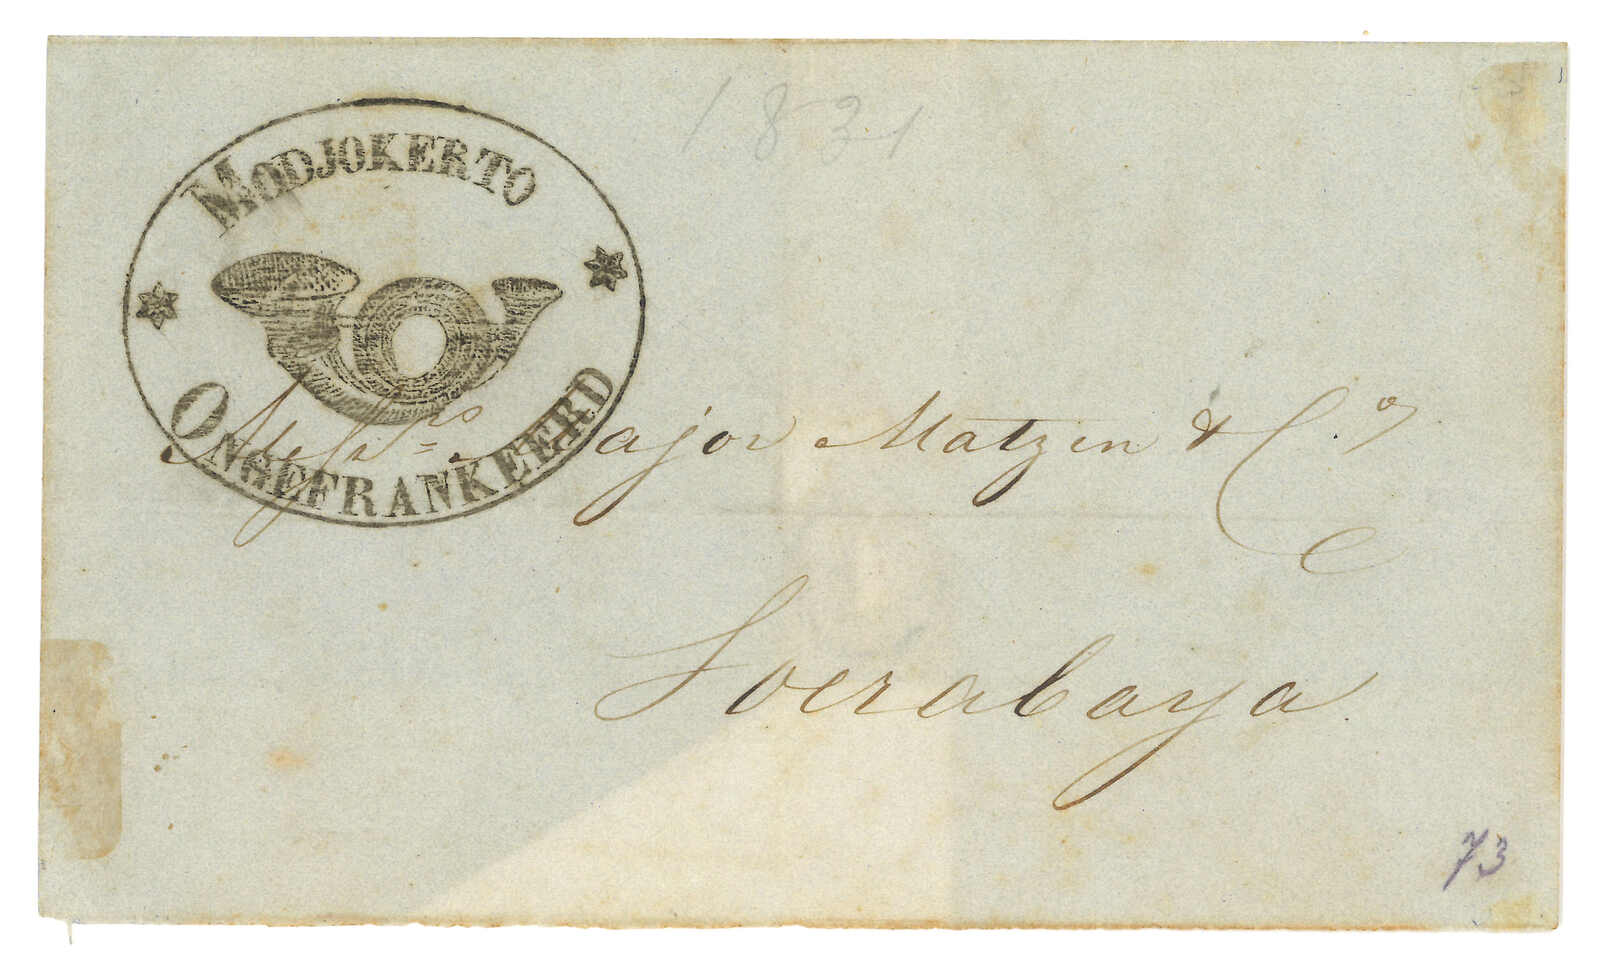 1831
MODJOKERTO
ONGEFRANKEERD
Messrs Major Matzen & Co
Soerabaya
73